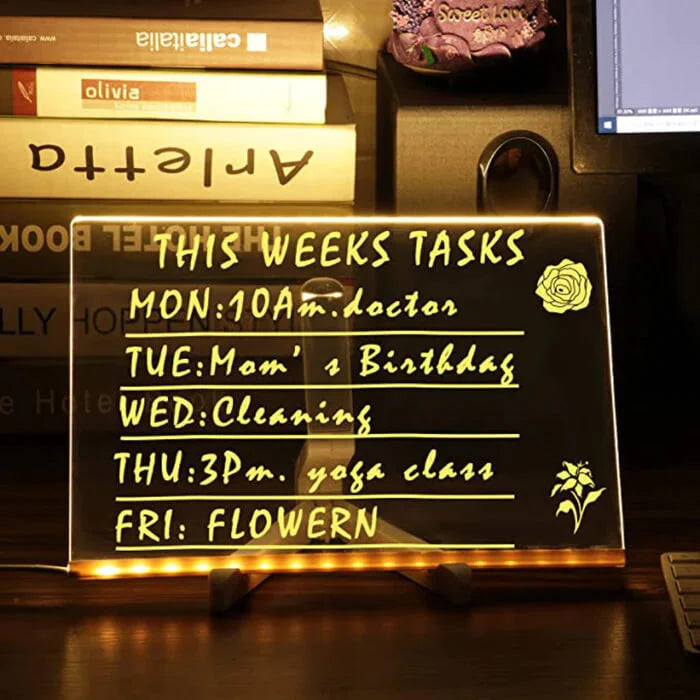 Sweet Love
www.caliaitalia.co
caliaitalia
olivia
Arletta
THE HOTEL BOOK
LLY HOPPEN STY
e Hotel Book
THIS WEEKS TASKS
MON:10Am.doctor
TUE:Mom' s Birthday
WED:Cleaning
THU:3Pm. yoga class
FRI: FLOWERN